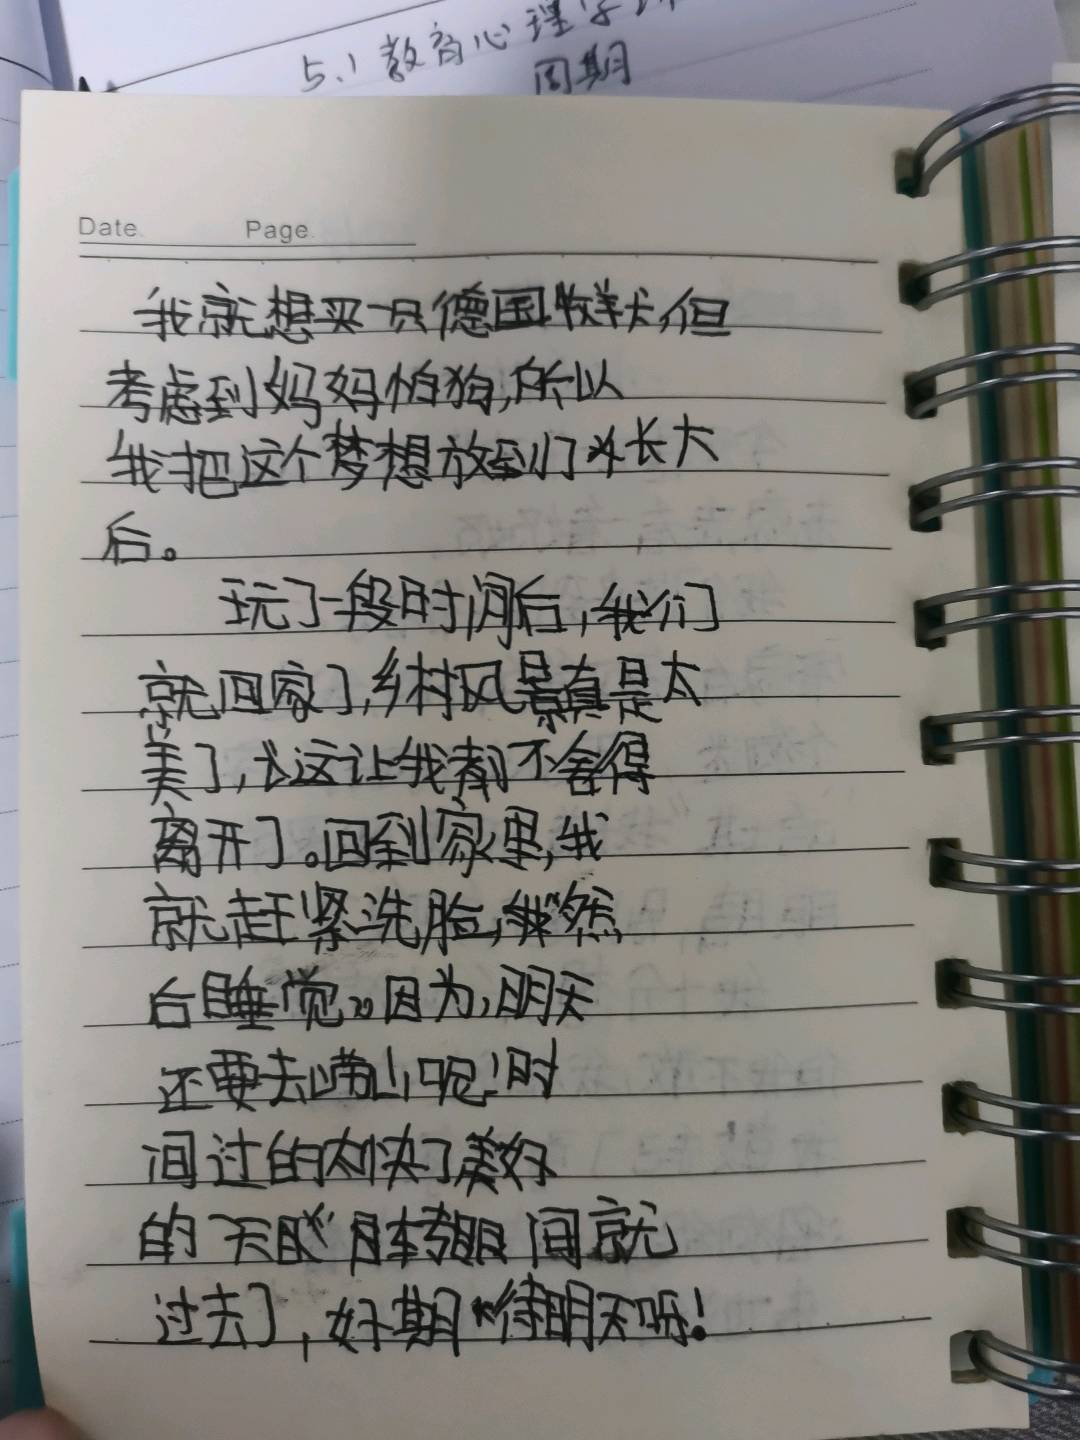 5.1 教育心理学
周期
Date. Page.
我就想买一只德国牧羊犬,但
考虑到妈妈怕狗,所以
我把这个梦想放到们长大
后。
玩了一段时间后,我们
就回家了,乡村风景真是太
美了,这让我都不舍得
离开了。回到家里,我
就赶紧洗脸,然
后睡觉。因为,明天
还要去崂山呢!时
间过的太快了美好
的一天眨眼间就
过去了,好期待明天呀!